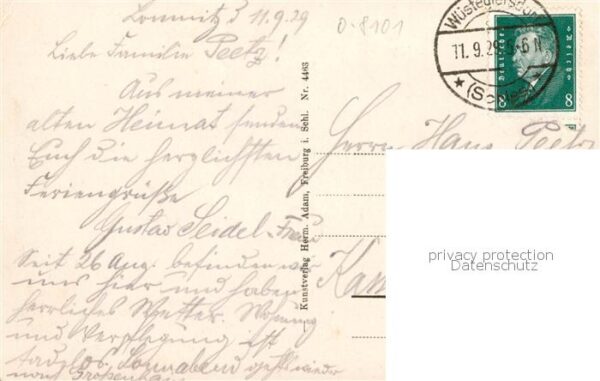 Lomnitz d 11.9.29
Liebe Familie Peetz!
Aus meiner
alten Heimat senden
Euch die herzlichsten
Feriengrüße
Gustav Seidel + Frau
Seit 26 Aug. befinden wir
uns hier und haben
herrliches Wetter. Wohnung
und Verpflegung ist
tadellos. Sonnabend geht's wieder
nach Großenhain
Kunstverlag Herm. Adam, Freiburg i. Schl. Nr. 4463
0-8101
Wüstegiersdorf
11.9.29. 5-6 N
(Schles.)
Deutsches Reich
8 8
Herrn Hans Peetz
privacy protection
Datenschutz